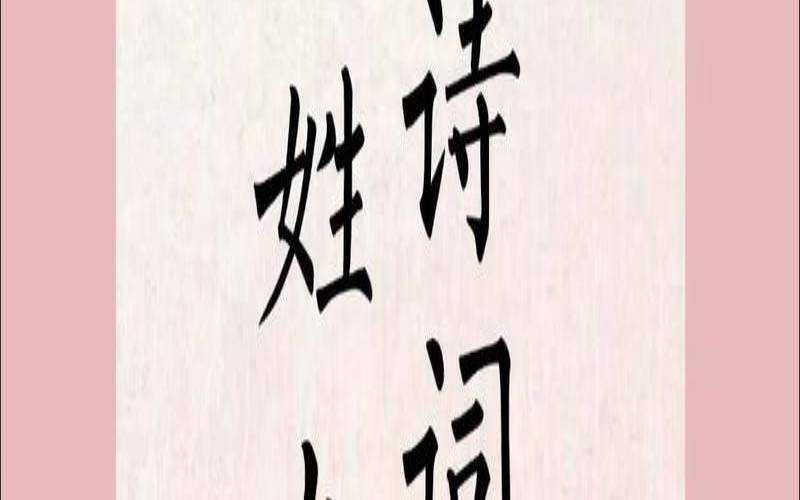 诗词
姓